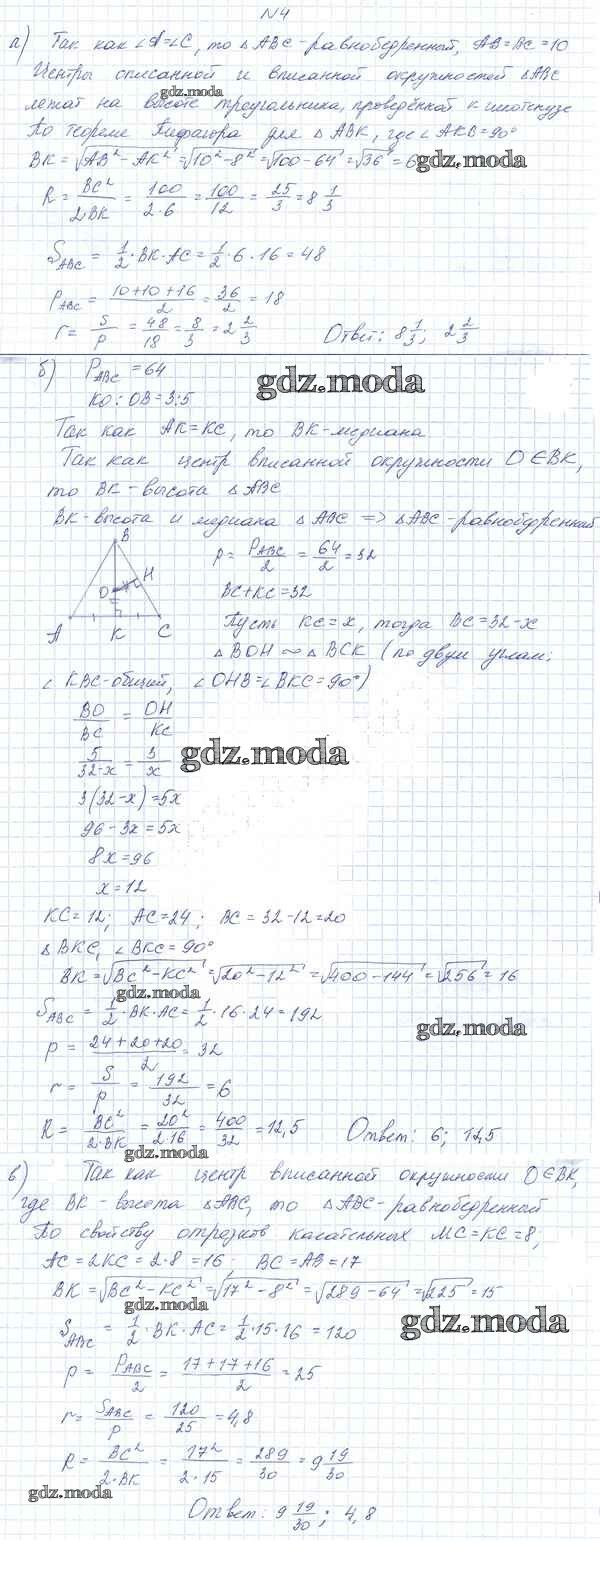 N4
а) Так как ∠A=∠C, то △ABC - равнобедренный, AB=BC=10
Центры описанной и вписанной окружностей △ABC
gdz.moda
лежат на высоте треугольника, проведённой к гипотенузе
По теореме Пифагора для △ABK, где ∠AKB=90°
BK = √AB²-AK² = √10²-8² = √100-64 = √36 = 6
gdz.moda
R = BC²/2BK = 100/2·6 = 100/12 = 25/3 = 8 1/3
S_ABC = 1/2·BK·AC = 1/2·6·16 = 48
P_ABC = 10+10+16/2 = 36/2 = 18
r = S/P = 48/18 = 8/3 = 2 2/3 Ответ: 8 1/3; 2 2/3
б) P_ABC = 64
gdz.moda
KO:OB=3:5
Так как AK=KC, то BK-медиана
Так как центр вписанной окружности O∈BK,
то BK-высота △ABC
BK-высота и медиана △ABC => △ABC-равнобедренный
B
O
H
A K C
p = P_ABC/2 = 64/2 = 32
BC+KC=32
Пусть KC=x, тогда BC=32-x
△BOH ∾ △BCK (по двум углам:
∠KBC-общий, ∠OHB=∠BKC=90°)
BO/BC = OH/KC
gdz.moda
5/32-x = 3/x
3(32-x)=5x
96-3x=5x
8x=96
x=12
KC=12; AC=24; BC=32-12=20
△BKC, ∠BKC=90°
BK = √BC²-KC² = √20²-12² = √400-144 = √256 = 16
gdz.moda
S_ABC = 1/2·BK·AC = 1/2·16·24 = 192
gdz.moda
p = 24+20+20/2 = 32
r = S/p = 192/32 = 6
R = BC²/2·BK = 20²/2·16 = 400/32 = 12,5 Ответ: 6; 12,5
gdz.moda
в) Так как центр вписанной окружности O∈BK,
где BK-высота △ABC, то △ABC-равнобедренный
По свойству отрезков касательных MC=KC=8;
AC=2KC=2·8=16; BC=AB=17
BK = √BC²-KC² = √17²-8² = √289-64 = √225 = 15
gdz.moda
S_ABC = 1/2·BK·AC = 1/2·15·16 = 120
gdz.moda
p = P_ABC/2 = 17+17+16/2 = 25
r = S_ABC/p = 120/25 = 4,8
R = BC²/2·BK = 17²/2·15 = 289/30 = 9 19/30
gdz.moda
Ответ: 9 19/30; 4,8